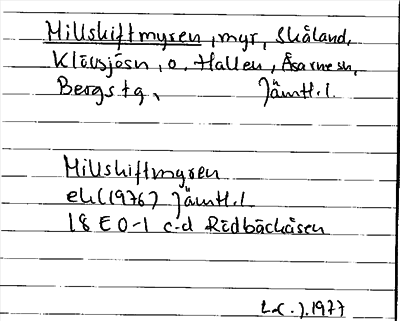 Millskiftmyren, myr, Skåland,
Klövsjösn, o. Hallen, Åsarnesn,
Bergs tg, Jämtl.l.
Millskiftmyren
ek (1976) Jämtl.l
18 E 0-1 c-d Rödbäckåsen
1977